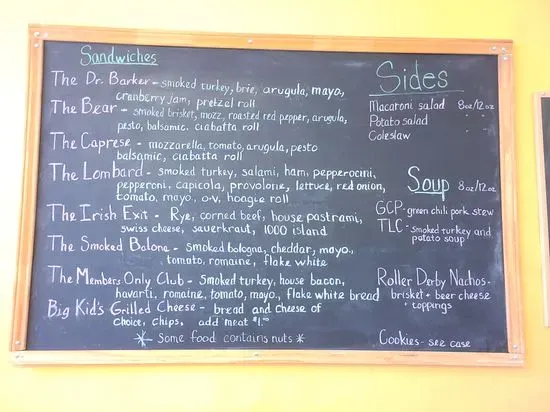 Sandwiches
The Dr. Barker - smoked turkey, brie, arugula, mayo,
cranberry jam, pretzel roll
The Bear - smoked brisket, mozz, roasted red pepper, arugula,
pesto, balsamic, ciabatta roll
The Caprese - mozzarella, tomato, arugula, pesto
balsamic, ciabatta roll
The Lombard - smoked turkey, salami, ham, pepperocini,
pepperoni, capicola, provolone, lettuce, red onion,
tomato, mayo, o-v, hoagie roll
The Irish Exit - Rye, corned beef, house pastrami,
swiss cheese, sauerkraut, 1000 island
The Smoked Balona - smoked bologna, cheddar, mayo,
tomato, romaine, flake white
The Members Only Club - smoked turkey, house bacon,
havarti, romaine, tomato, mayo, flake white bread
Big Kid's Grilled Cheese - bread and cheese of
choice, chips, add meat $1.00
* Some food contains nuts *
Sides
Macaroni salad 8oz/12oz
Potato salad " "
Coleslaw " "
Soup 8oz/12oz
GCP - green chili pork stew
TLC - smoked turkey and
potato soup
Roller Derby Nachos -
brisket + beer cheese
+ toppings
Cookies - see case